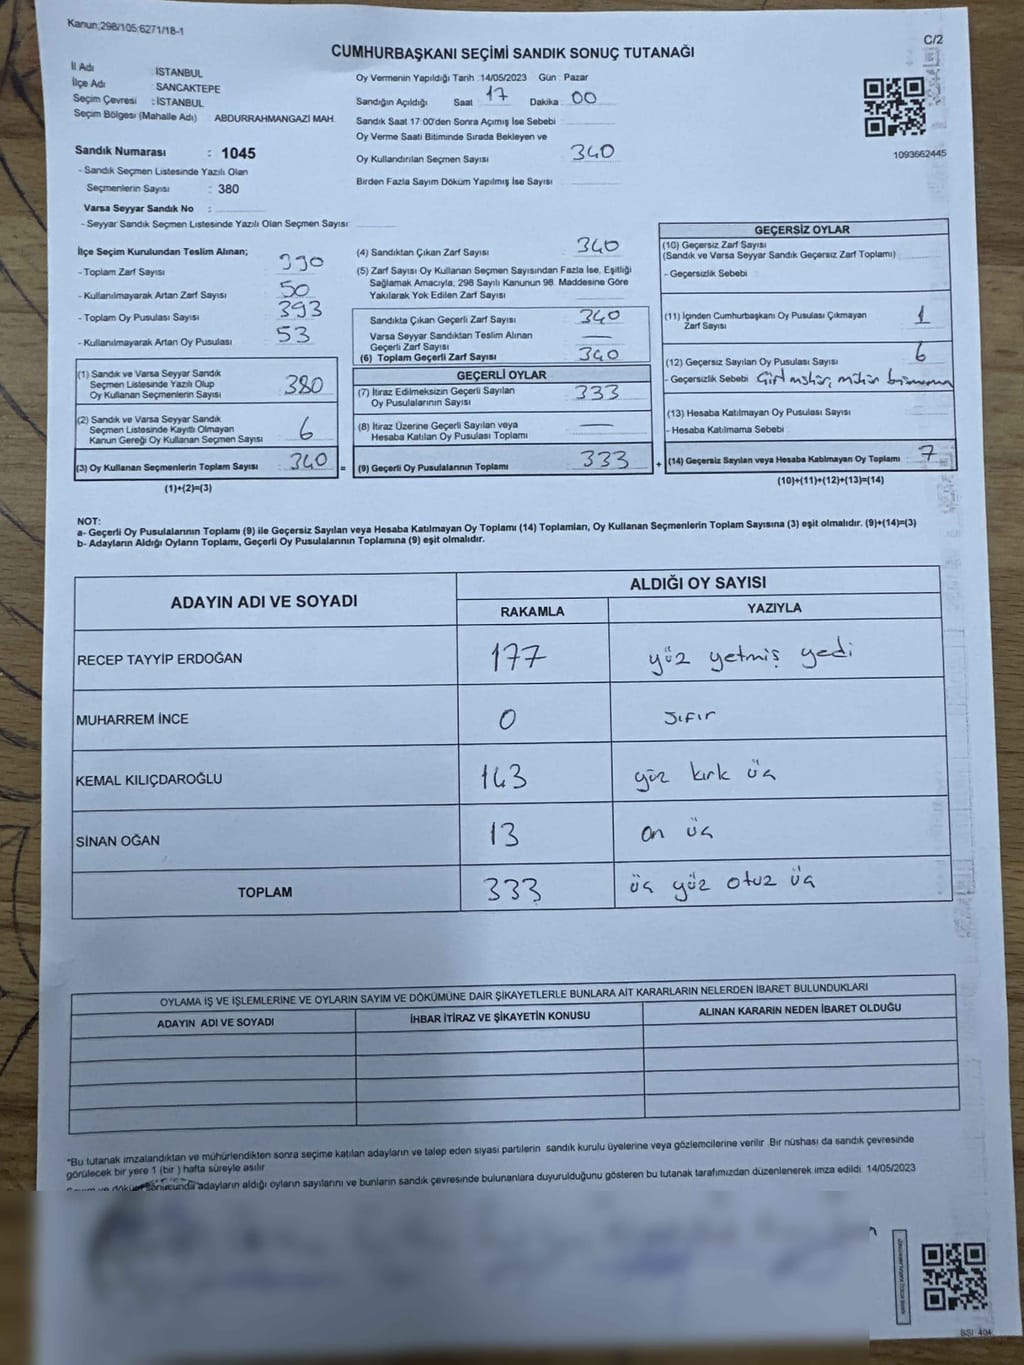 Kanun;298/105;6271/18-1
C/2
CUMHURBAŞKANI SEÇİMİ SANDIK SONUÇ TUTANAĞI
İl Adı : İSTANBUL
İlçe Adı : SANCAKTEPE
Seçim Çevresi : İSTANBUL
Seçim Bölgesi (Mahalle Adı) ABDURRAHMANGAZİ MAH.
Sandık Numarası : 1045
- Sandık Seçmen Listesinde Yazılı Olan
Seçmenlerin Sayısı : 380
Varsa Seyyar Sandık No :
- Seyyar Sandık Seçmen Listesinde Yazılı Olan Seçmen Sayısı :
Oy Vermenin Yapıldığı Tarih :14/05/2023 Gün : Pazar
Sandığın Açıldığı Saat 17 Dakika 00
Sandık Saat 17:00'den Sonra Açımış İse Sebebi
Oy Verme Saati Bitiminde Sırada Bekleyen ve
Oy Kullandırılan Seçmen Sayısı 340
Birden Fazla Sayım Döküm Yapılmış İse Sayısı
1093662445
İlçe Seçim Kurulundan Teslim Alınan;
- Toplam Zarf Sayısı 390
- Kullanılmayarak Artan Zarf Sayısı 50
- Toplam Oy Pusulası Sayısı 393
- Kullanılmayarak Artan Oy Pusulası 53
(1) Sandık ve Varsa Seyyar Sandık
Seçmen Listesinde Yazılı Olup
Oy Kullanan Seçmenlerin Sayısı 380
(2) Sandık ve Varsa Seyyar Sandık
Seçmen Listesinde Kayıtlı Olmayan
Kanun Gereği Oy Kullanan Seçmen Sayısı 6
(3) Oy Kullanan Seçmenlerin Toplam Sayısı 340 =
(1)+(2)=(3)
(4) Sandıktan Çıkan Zarf Sayısı 340
(5) Zarf Sayısı Oy Kullanan Seçmen Sayısından Fazla İse, Eşitliği
Sağlamak Amacıyla, 298 Sayılı Kanunun 98. Maddesine Göre
Yakılarak Yok Edilen Zarf Sayısı
Sandıkta Çıkan Geçerli Zarf Sayısı 340
Varsa Seyyar Sandıktan Teslim Alınan
Geçerli Zarf Sayısı —
(6) Toplam Geçerli Zarf Sayısı 340
GEÇERLİ OYLAR
(7) İtiraz Edilmeksizin Geçerli Sayılan
Oy Pusulalarının Sayısı 333
(8) İtiraz Üzerine Geçerli Sayılan veya
Hesaba Katılan Oy Pusulası Toplamı —
(9) Geçerli Oy Pusulalarının Toplamı 333 +
GEÇERSİZ OYLAR
(10) Geçersiz Zarf Sayısı
(Sandık ve Varsa Seyyar Sandık Geçersiz Zarf Toplamı)
- Geçersizlik Sebebi
(11) İçinden Cumhurbaşkanı Oy Pusulası Çıkmayan
Zarf Sayısı 1
(12) Geçersiz Sayılan Oy Pusulası Sayısı 6
- Geçersizlik Sebebi mühür
(13) Hesaba Katılmayan Oy Pusulası Sayısı
- Hesaba Katılmama Sebebi
(14) Geçersiz Sayılan veya Hesaba Katılmayan Oy Toplamı 7
(10)+(11)+(12)+(13)=(14)
NOT:
a- Geçerli Oy Pusulalarının Toplamı (9) ile Geçersiz Sayılan veya Hesaba Katılmayan Oy Toplamı (14) Toplamları, Oy Kullanan Seçmenlerin Toplam Sayısına (3) eşit olmalıdır. (9)+(14)=(3)
b- Adayların Aldığı Oyların Toplamı, Geçerli Oy Pusulalarının Toplamına (9) eşit olmalıdır.
ADAYIN ADI VE SOYADI ALDIĞI OY SAYISI
RAKAMLA YAZIYLA
RECEP TAYYİP ERDOĞAN 177 yüz yetmiş yedi
MUHARREM İNCE 0 sıfır
KEMAL KILIÇDAROĞLU 143 yüz kırk üç
SİNAN OĞAN 13 on üç
TOPLAM 333 üç yüz otuz üç
OYLAMA İŞ VE İŞLEMLERİNE VE OYLARIN SAYIM VE DÖKÜMÜNE DAİR ŞİKAYETLERLE BUNLARA AİT KARARLARIN NELERDEN İBARET BULUNDUKLARI
ADAYIN ADI VE SOYADI İHBAR İTİRAZ VE ŞİKAYETİN KONUSU ALINAN KARARIN NEDEN İBARET OLDUĞU
*Bu tutanak imzalandıktan ve mühürlendikten sonra seçime katılan adayların ve talep eden siyasi partilerin sandık kurulu üyelerine veya gözlemcilerine verilir .Bir nüshası da sandık çevresinde
görülecek bir yere 1 (bir ) hafta süreyle asılır
sonucunda adayların aldığı oyların sayılarını ve bunların sandık çevresinde bulunanlara duyurulduğunu gösteren bu tutanak tarafımızdan düzenlenerek imza edildi. 14/05/2023